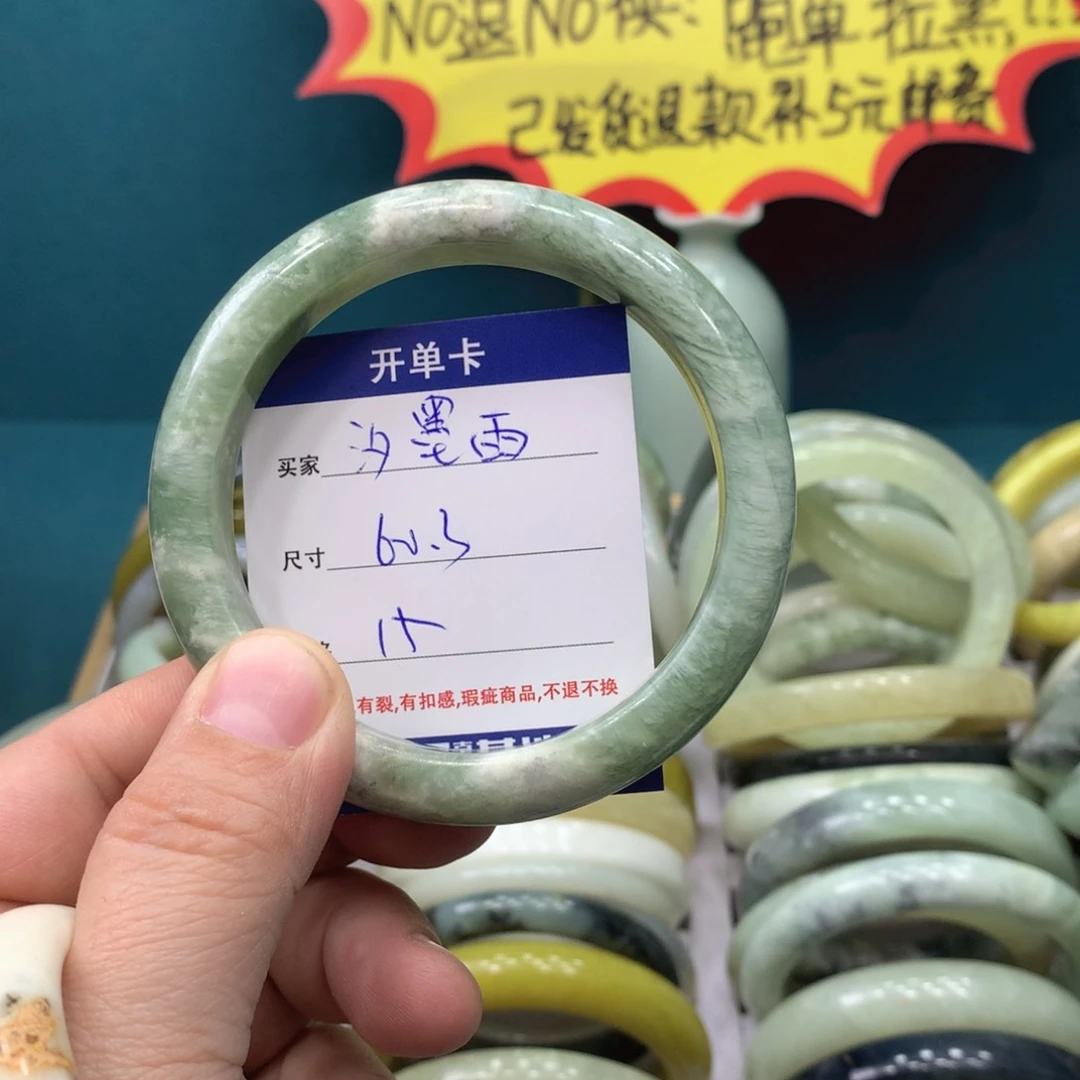 NO退NO换: 跑单拉黑!!!
已发货退款补5元邮费
开单卡
买家 汐墨雨
尺寸
有裂,有扣感,瑕疵商品,不退不换